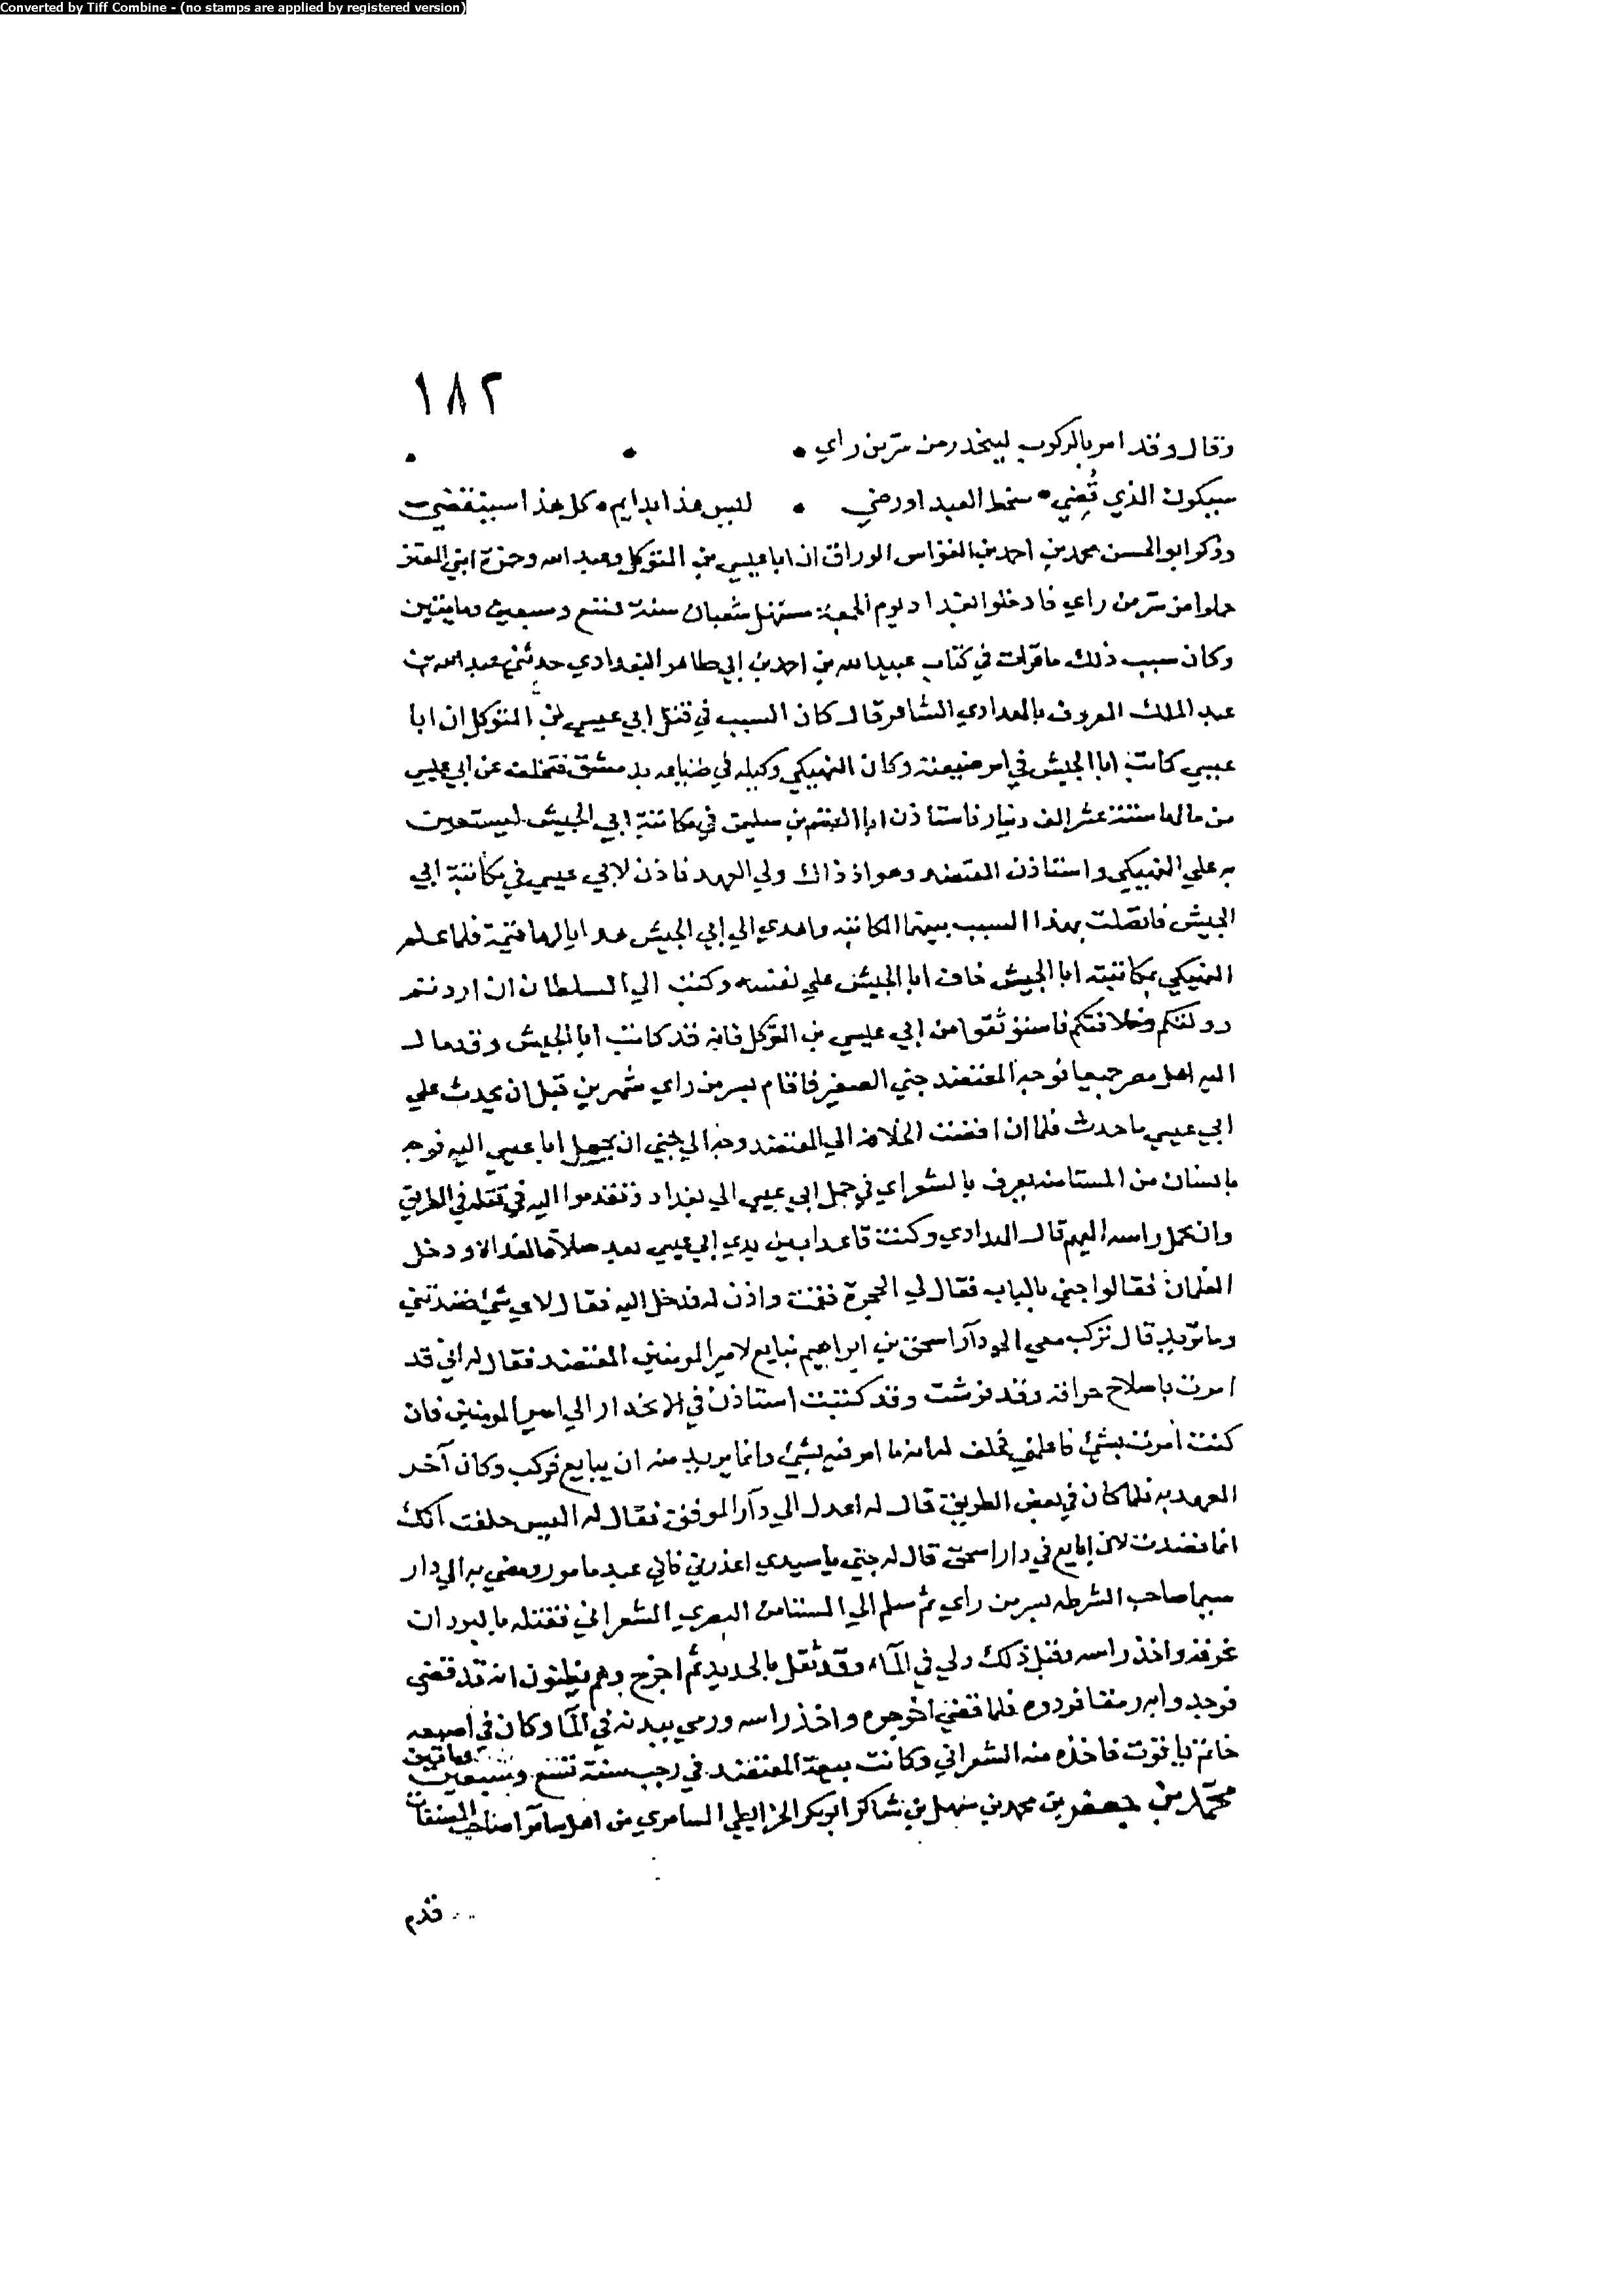 Converted by Tiff Combine - (no stamps are applied by registered version)
١٨٢
وقال وقد امر بالركوب لينحدر من سر من راي
سيكون الذي قُضي سخط العبد او رضي ليس هذا بدايم كل هذا سينقضي
وذكر ابو الحسن محمد بن احمد بن القواس الوراق ان ابا عيسي بن المتوكل وعبد الله وحمزة ابني المعتز
حملوا من سر من راي فادخلوا بغداد يوم الجمعة مستهل شعبان سنة تسع وسبعين ومايتين
وكان سبب ذلك ما قرات في كتاب عبيد الله بن احمد بن ابي طاهر البغدادي حدثني عبد الله بن
عبد الملك المعروف بالهدادي الشاعر قال كان السبب في قتل ابي عيسي بن المتوكل ان ابا
عيسي كاتب ابا الجيش في امر ضيعته وكان النهيكي وكيله في ضياعه بدمشق فتخلف عن ابي عيسي
من مالها ستة عشر الف دينار فاستاذن ابا القسم بن سليمن في مكاتبة ابي الجيش ليستعين
به علي النهيكي واستاذن المعتضد وهو اذ ذاك ولي العهد فاذن لابي عيسي في مكاتبة ابي
الجيش فاتصلت بهذا السبب بينهما المكاتبه واهدي الي ابي الجيش هدايا لها قيمة فلما علم
النهيكي بمكاتبته ابا الجيش خاف ابا الجيش علي نفسه وكتب الي السلطان ان اردتم
دولتكم وخلافتكم فاستوثقوا من ابي عيسي بن المتوكل فانه قد كاتب ابا الجيش وقد مال
اليه اهل مصر جميعا فوجه المعتضد جني الصغير فاقام بسر من راي شهرين قبل ان يحدث علي
ابي عيسي ما حدث فلما ان افضت الخلافة الي المعتضد وجه الي جني ان يحمل ابا عيسي اليه فوجه
بانسان من المستامنه يعرف بالشعراي في حمل ابي عيسي الي بغداد وتقدموا اليه في قتله في الطريق
وان يحمل راسه اليهم قال الهدادي وكنت قاعدا بين يدي ابي عيسي بعد صلاة الغداة ودخل
الغلمان فقالوا جني بالباب فقال لي الحجرة فقمت واذن له فدخل اليه فقال لاي شي قصدتني
وما تريد قال تركب معي الي دار اسحق بن ابراهيم تبايع لامير المومنين المعتضد فقال له اني قد
امرت باصلاح حراقة وقد فرشت وقد كتبت استاذن في الانحدار الي امير المومنين فان
كنت امرت بشئ فاعلمني فحلف له انه ما امر فيه بشئ وانما يريد منه ان يبايع فركب وكان آخر
العهد به فلما كان في بعض الطريق قال له اعدل الي دار الموفق فقال له اليس حلفت انك
انما قصدت لان ابايع في دار اسحق قال له جني يا سيدي اعذرني فاني عبد مامور ومضي به الي دار
سيما صاحب الشرطه بسر من راي ثم سلم الي المستامن البصري الشعراني فقتله بالبردان
غرقه واخذ راسه وقبل ذلك دلي في الماء وقد ثقل بالحديد ثم اخرج وهم يظنون انه قد قضي
فوجد وابه رمقا فردوه فلما قضي اخرجوه واخذ راسه ورمي ببدنه في الما وكان في اصبعه
خاتم ياقوت فاخذه منه الشعراني وكانت بيعة المعتضد في رجب سنة تسع وسبعين ومايتين
محمد بن جعفر بن محمد بن سهل بن شاكر ابو بكر الخرايطي السامري من اهل سامرا صاحب المصنفات
قدم